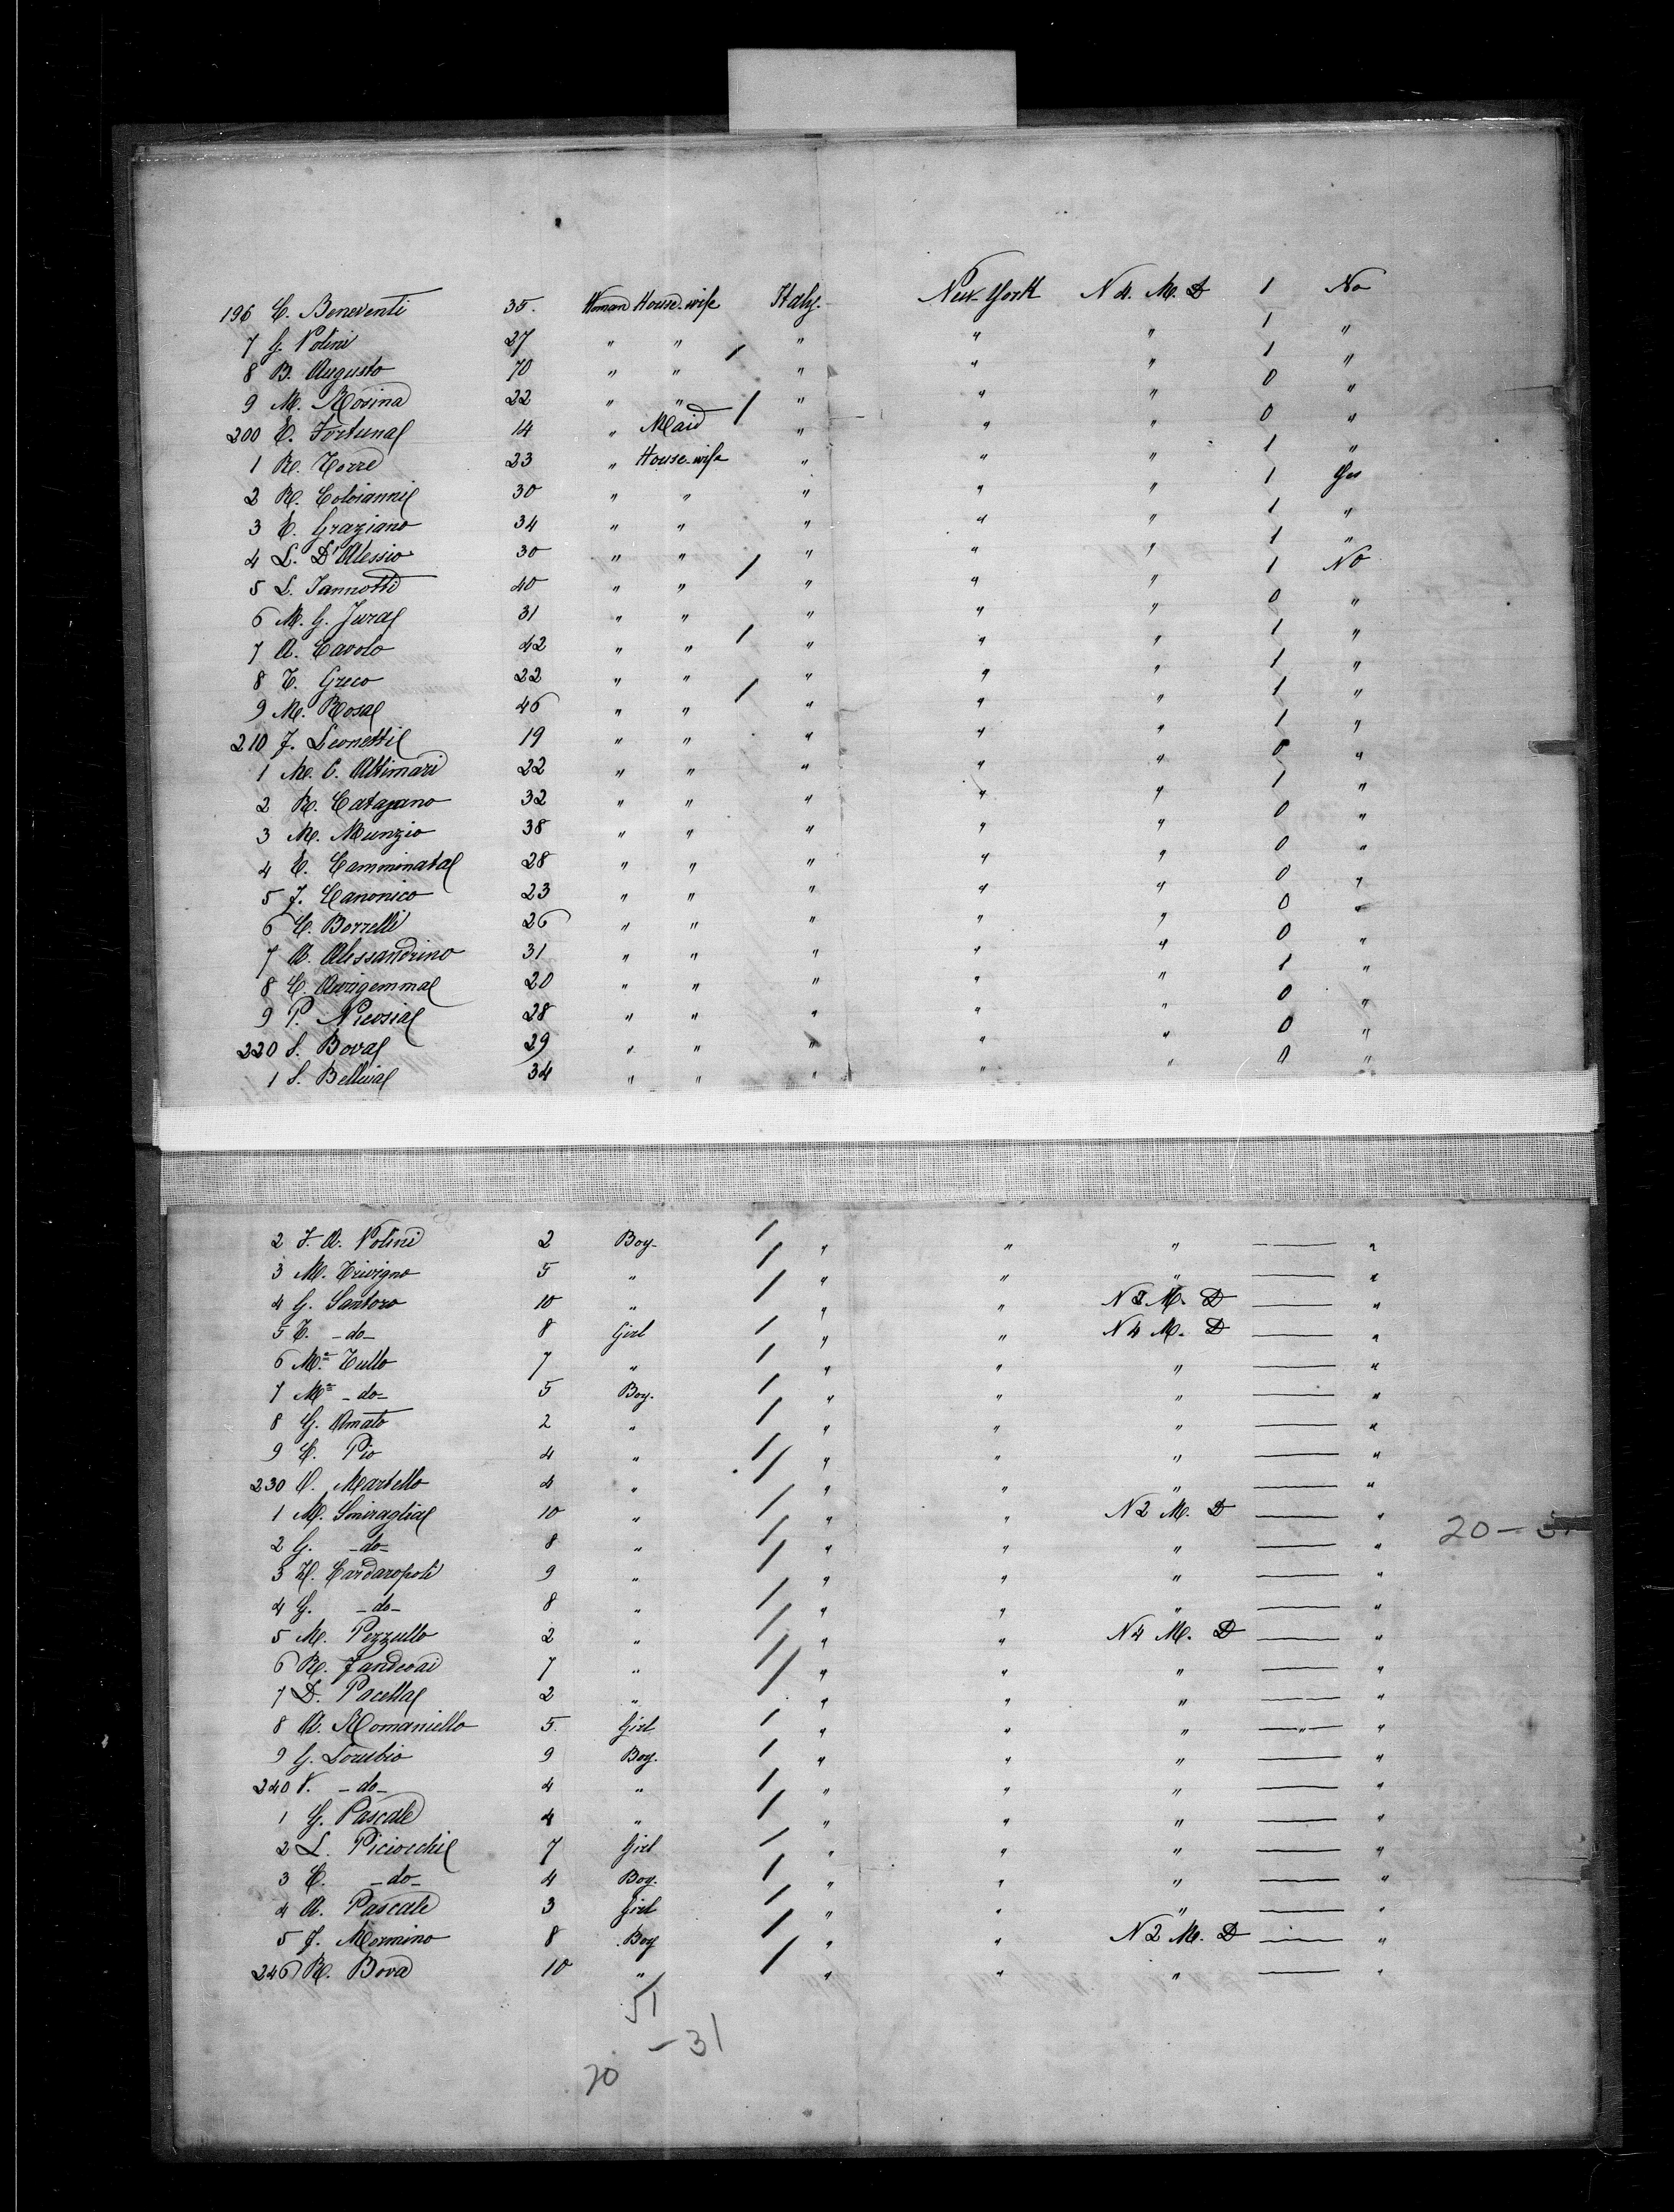 196 C. Beneventi 35. Woman House-wife Italy. New-York N 4. M. D 1 No
7 G. Volini 27 " " " " " 1 "
8 B. Augusto 70 " " / " " " 1 "
9 M. Rosina 22 " " " " " 0 "
200 C. Fortuna 14 " Maid / " " " 0 "
1 R. Torre 23 " House-wife " " " 1 "
2 R. 30 " " " " " 1 Yes
3 C. Graziano 34 " " " " " 1 "
4 L. D'Alessio 30 " " " " " 1 "
5 L. Iannotti 40 " " / " " " 1 No
6 M. G. Jura 31 " " " " " 0 "
7 A. Cavolo 42 " " / " " " 1 "
8 T. Greco 22 " " " " " 1 "
9 M. Rosa 46 " " / " " " 1 "
210 F. Leonetti 19 " " " " " 1 "
1 M. C. Altimari 22 " " " " " 0 "
2 R. 32 " " " " " 1 "
3 M. Munzio 38 " " " " " 0 "
4 C. Camminata 28 " " " " " 0 "
5 F. Canonico 23 " " " " " 0 "
6 C. Borrelli 26 " " " " " 0 "
7 A. Alessandrino 31 " " " " " 0 "
8 C. Aurigemma 20 " " " " " 1 "
9 P. Nicosia 28 " " " " " 0 "
220 S. Bova 29 " " " " " 0 "
1 S. 34 " " " " " 0 "
2 F. A. Volini 2 Boy- / " " " — "
3 M. Trivigno 5 " / " " " — "
4 G. Santoro 10 " / " " N 3 M. D — "
5 T. -do- 8 Girl / " " N 4 M. D — "
6 Mª Tullo 7 " / " " " — "
7 Mª -do- 5 Boy. / " " " — "
8 G. Amato 2 " / " " " — "
9 C. Pio 4 " / " " " — "
230 C. Martello 4 " / " " " — "
1 M. Smiraglia 10 " / " " N 2 M. D — "
20-31
2 G. -do- 8 " / " " " — "
3 Cardaropoli 9 " / " " " — "
4 G. -do- 8 " / " " " — "
5 M. Pezzullo 2 " / " " N 4 M. D — "
6 R. 7 " / " " " — "
7 D. Pacella 2 " / " " " — "
8 A. Romaniello 5. Girl / " " " — " — "
9 G. Lorubio 9 Boy. / " " " — "
240 V. -do- 4 " / " " " — "
1 G. Pascale 4 " / " " " — "
2 L. Piciocchi 7 Girl / " " " — "
3 C. -do- 4 Boy. / " " " — "
4 A. Pascale 3 Girl / " " " — "
5 F. Mormino 8 Boy / " " N 2 M. D — "
246 R. Bova 10 " / " " " — "
51
20 - 31